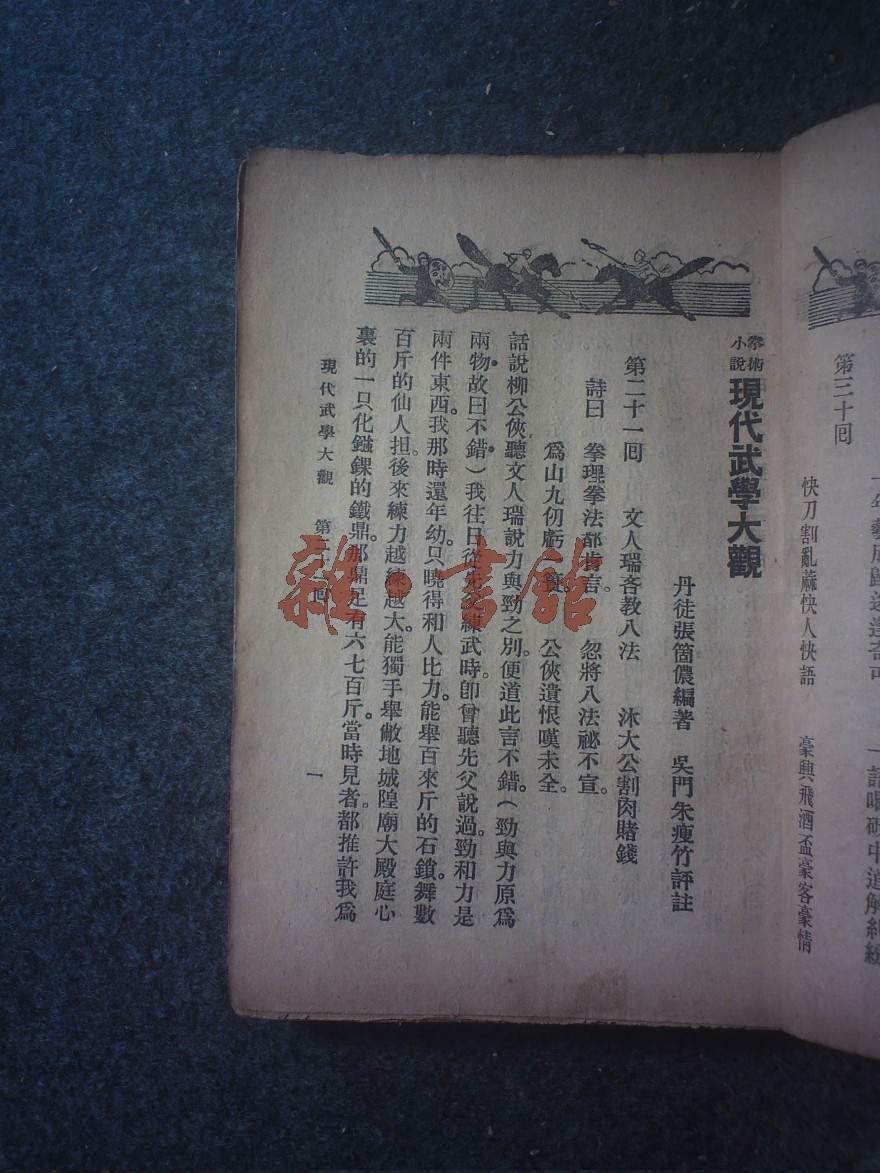 第三十回
快刀割亂蔴快人快語　豪興飛酒盃豪客豪情
拳術小說 現代武學大觀
丹徒張箇儂編著　吳門朱瘦竹評註
第二十一回　文人瑞吝教八法　沐大公割肉賭錢
詩曰　拳理拳法都肯言。　忽將八法祕不宣。
爲山九仞虧 簣。　公俠遺恨嘆未全。
話說柳公俠聽文人瑞說力與勁之別。便道此言不錯。(勁與力原爲
兩物故曰不錯)我往日從先父練武時。卽曾聽先父說過。勁和力是
兩件東西。我那時還年幼。只曉得和人比力。能舉百來斤的石鎖。舞數
百斤的仙人担。後來練力越練越大。能獨手舉敝地城隍廟大殿庭心
裏的一只化鏹錁的鐵鼎。那鼎足有六七百斤。當時見者。都推許我爲
現代武學大觀　第二十一回　一
雜·書館